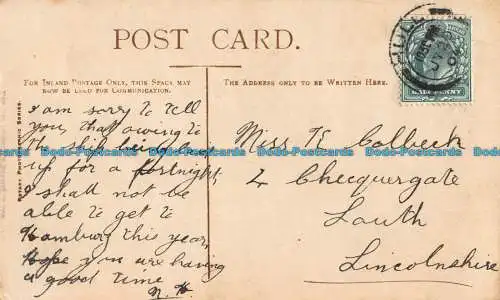 POST CARD.
FOR INLAND POSTAGE ONLY, THIS SPACE MAY
NOW BE USED FOR COMMUNICATION.
THE ADDRESS ONLY TO BE WRITTEN HERE.
HALF PENNY
HULL
I am sorry to tell
you, that owing to
the ship being laid
up for a fortnight,
I shall not be
able to get to
Hamburg this year,
Hope you are having
a good time
N. H.
Miss E Colbeck
4 Chequergate
Louth
Lincolnshire
Bodo-Postcards Bodo-Postcards Bodo-Postcards Bodo-Postcards